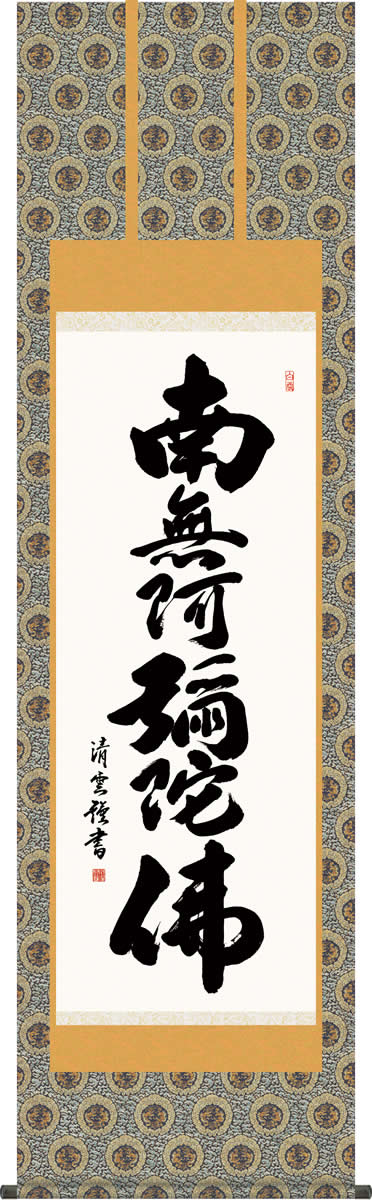 南無阿彌陀佛
清雲謹書